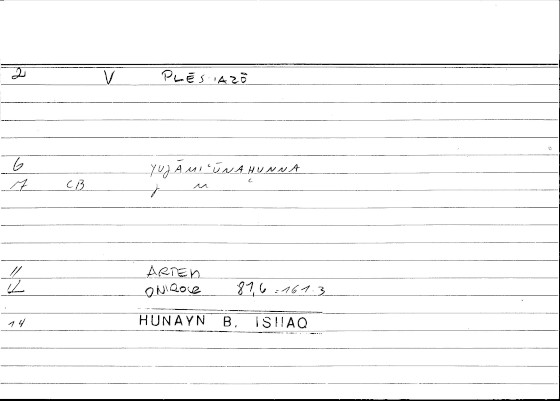 2 V PLĒSIAZŌ
6 YUǦĀMIʿŪNAHUNNA
7 CB ǧ M ʿ
11 ARTEM
12 ONIROCR 87,6 = 161.3
14 HUNAYN B. ISHAQ